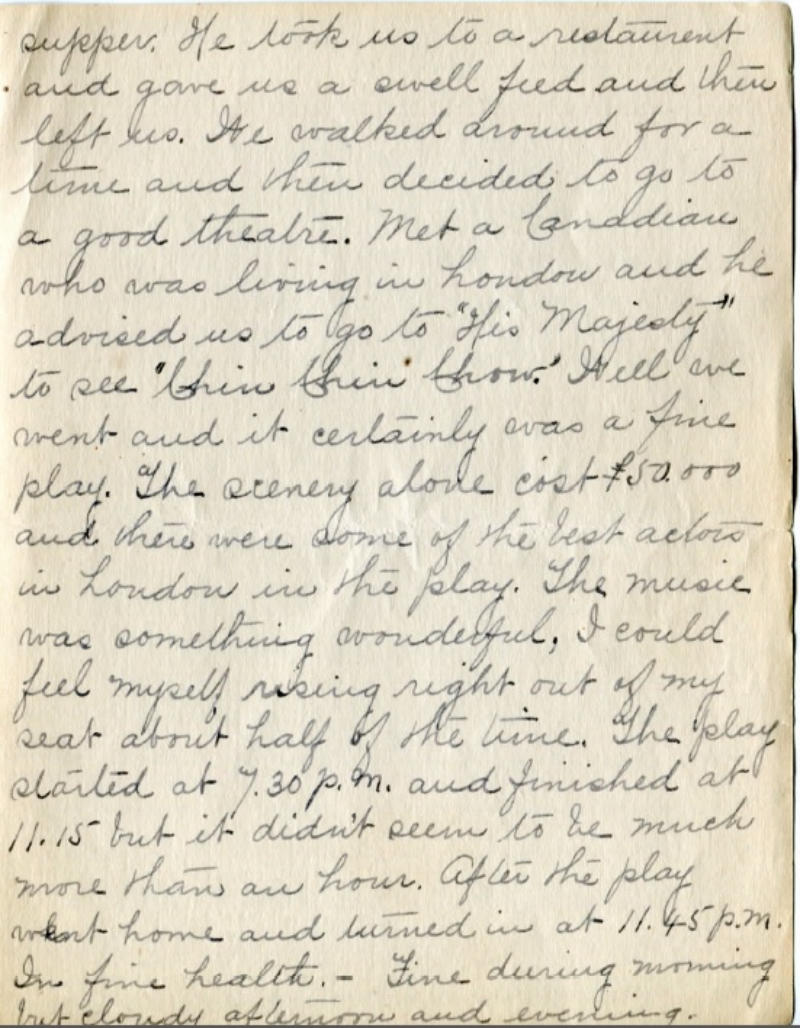 supper. He took us to a restaurent
and gave us a swell feed and then
left us. We walked around for a
time and then decided to go to
a good theatre. Met a Canadian
who was living in London and he
advised us to go to "His Majesty"
to see "Chin Chin Chow." Well we
went and it certainly was a fine
play. The scenery alone cost £50.000
and there were some of the best actors
in London in the play. The music
was something wonderful, I could
feel myself rising right out of my
seat about half of the time. The play
started at 7.30 p.m. and finished at
11.15 but it didn't seem to be much
more than an hour. After the play
went home and turned in at 11.45 p.m.
In fine health. - Fine during morning
but cloudy afternoon and evening.